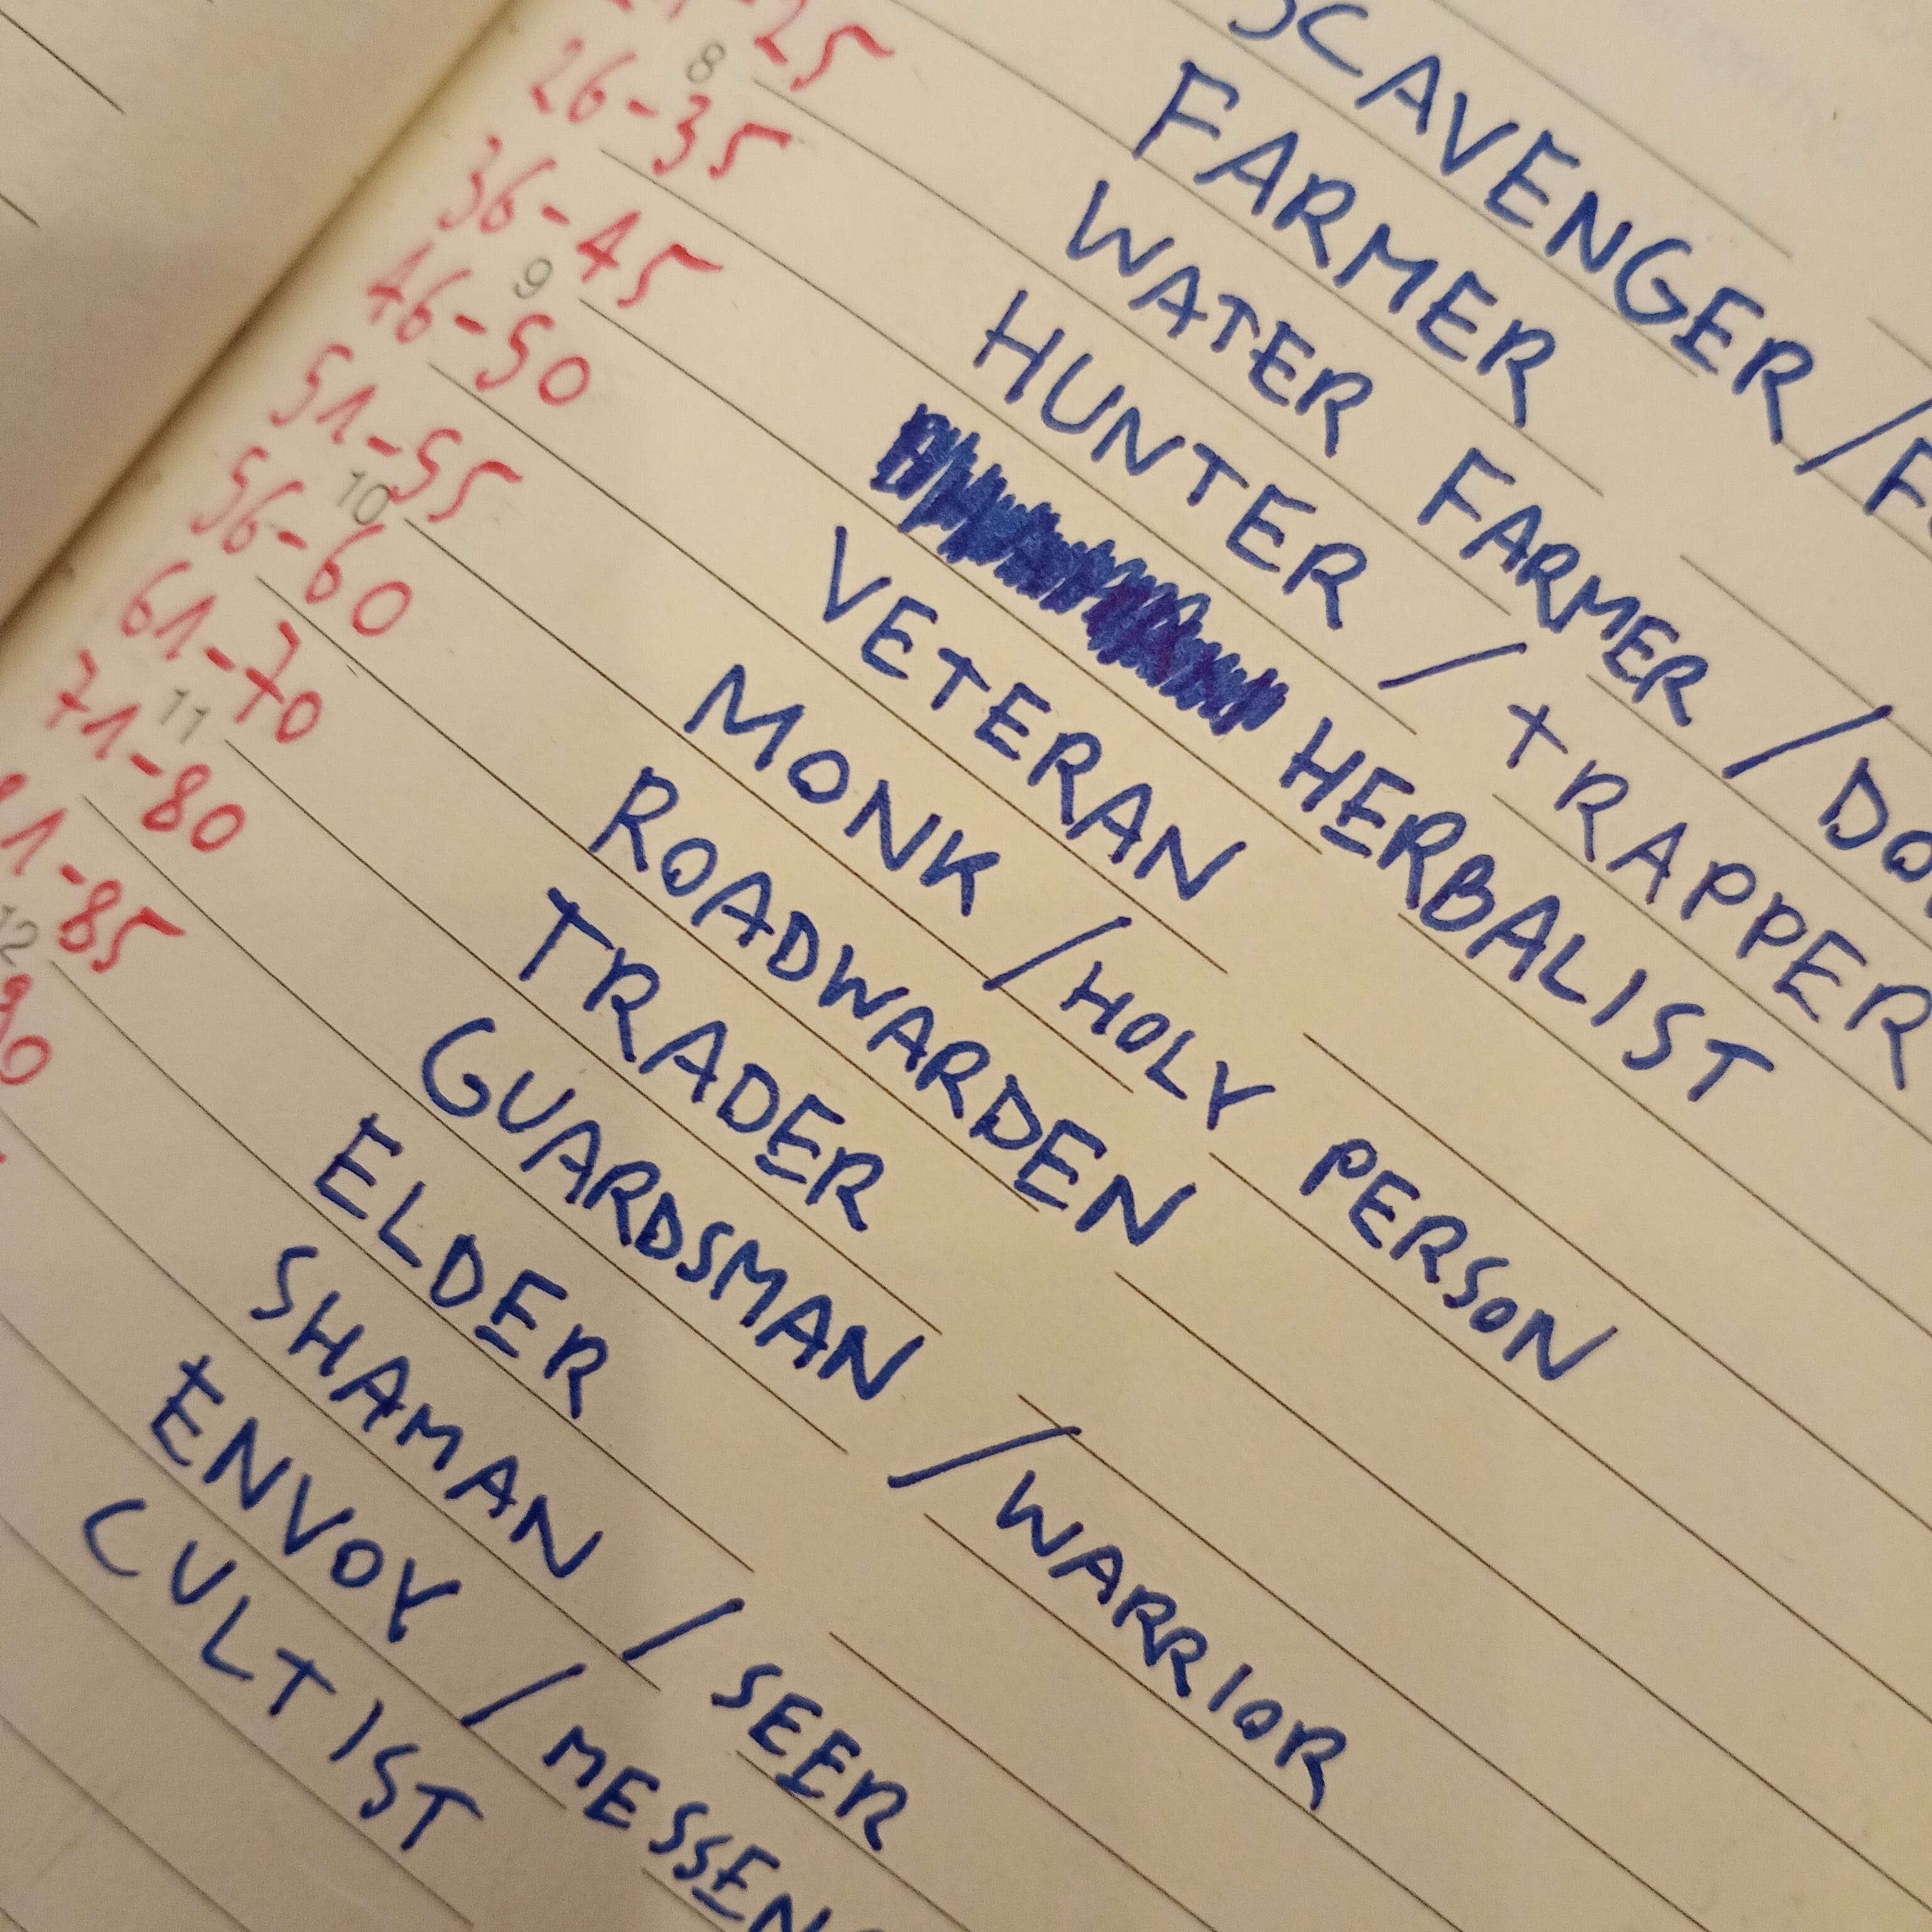 SCAVENGER /
FARMER
25 WATER FARMER /
8
26-35 HUNTER / TRAPPER
36-45 HERBALIST
9
46-50 VETERAN
51-55 MONK / HOLY PERSON
10
56-60 ROADWARDEN
61-70 TRADER
11
71-80 GUARDSMAN / WARRIOR
81-85 ELDER
12
90 SHAMAN / SEER
ENVOY / MESSEN
CULTIST